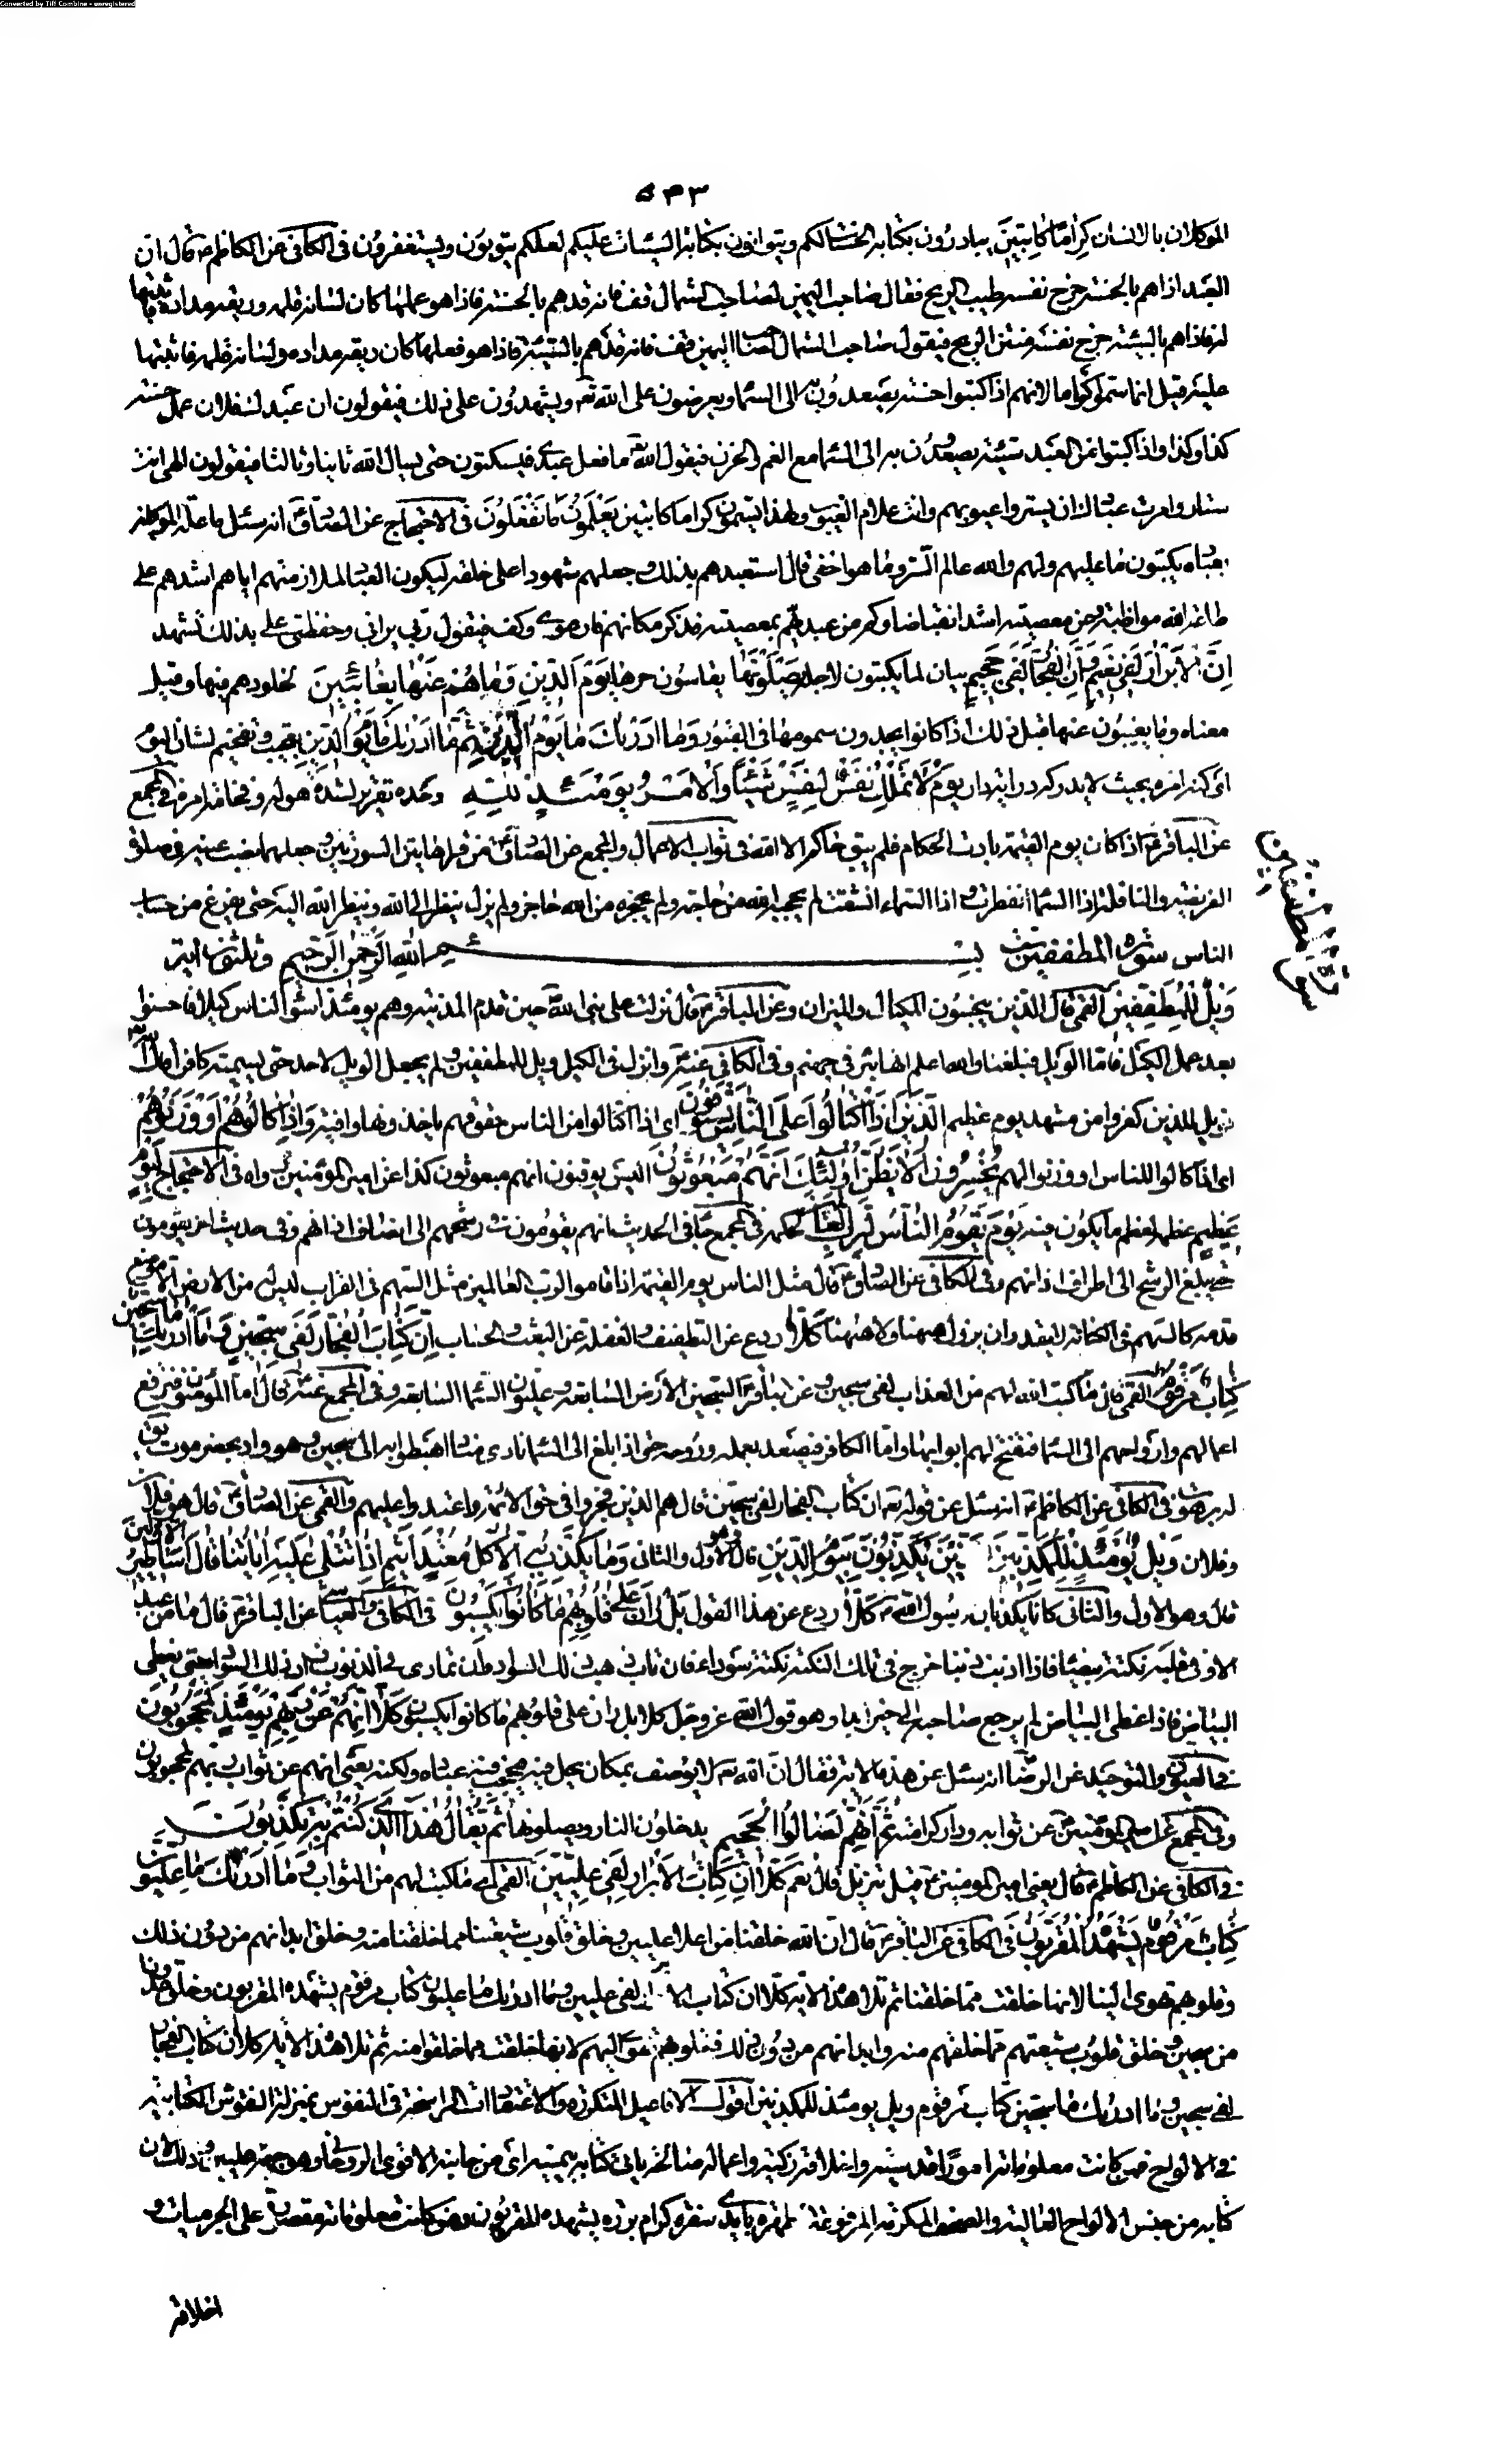 Converted by Tiff Combine - unregistered
٥٤٣
الموكلان بالانسان كِرامًا كاتِبينَ يبادرون بكتابة الحسنات لكم ويتوانون بكتابة السيئات عليكم لعلكم تتوبون وتستغفرون فى الكافى عن الكاظم ع قال ان
العبد اذا هم بالحسنة خرج نفسه طيب الريح فقال صاحب اليمين لصاحب الشمال قف فانه قد هم بالحسنة فاذا هو عملها كان لسانه قلمه وريقه مداده فاثبتها
له فاذا هم بالسيئة خرج نفسه منتن الريح فيقول صاحب الشمال لصاحب اليمين قف فانه قد هم بالسيئة فاذا هو فعلها كان ريقه مداده ولسانه قلمه فاثبتها
عليه قيل انما سموا كراما لانهم اذا كتبوا حسنة يصعدون به الى السماء ويعرضون على الله تعالى ويشهدون على ذلك فيقولون ان عبدك فلان عمل حسنة
كذا وكذا واذا كتبوا من العبد سيئة يصعدون به الى السماء مع الغم والحزن فيقول الله تعالى ما فعل عبدى فيسكتون حتى يسال الله ثانيا وثالثا فيقولون الهى انت
ستار وامرت عبادك ان يستروا عيوبهم وانت علام الغيوب ولهذا يسمون كراما كاتبين يَعْلَمُونَ ما تَفْعَلُونَ فى الاحتجاج عن الصادق ع انه سئل ما علة الموكلين
بعباده يكتبون ما عليهم ولهم والله عالم السر وما هو اخفى قال استعبدهم بذلك وجعلهم شهودا على خلقه ليكون العباد لملازمتهم اياهم اشد على
طاعة الله مواظبة وعن معصيته اشد انقباضا وكم من عبد يهم بمعصيته فذكر مكانهم فارعوى وكف فيقول ربى يرانى وحفظتى على بذلك تشهد
اِنَّ الْاَبْرارَ لَفى نَعيمٍ وَاِنَّ الْفُجّارَ لَفى جَحيمٍ بيان لما يكتبون لاجله يَصْلَوْنَها يقاسون حرها يَوْمَ الدّينِ وَما هُمْ عَنْها بِغائِبينَ لخلودهم فيها وقيل
معناه وما يغيبون عنها قبل ذلك اذ كانوا يجدون سمومها فى القبور وَما اَدْريكَ ما يَوْمُ الدّينِ ثُمَّ ما اَدْريكَ ما يَوْمُ الدّينِ تعجيب وتفخيم لشان اليوم
اى كنه امره بحيث لا يدركه دراية دار يَوْمَ لا تَمْلِكُ نَفْسٌ لِنَفْسٍ شَيْئًا وَالْاَمْرُ يَوْمَئِذٍ لِلّهِ وحده تقرير لشدة هوله وفخامة امره فى المجمع
عن الباقر ع اذا كان يوم القيمة بادت الحكام فلم يبق حاكم الا الله فى ثواب الاعمال والمجمع عن الصادق ع من قرا هاتين السورتين وجعلهما نصب عينيه فى صلوة
الفريضة والنافلة اذا السماء انفطرت واذا السماء انشقت لم يحجبه الله من حاجة ولم يحجزه من الله حاجز ولم يزل ينظر الى الله وينظر الله اليه حتى يفرغ من حساب
الناس سورة المطففين ست وثلثون اية بسم الله الرحمن الرحيم
وَيْلٌ لِلْمُطَفِّفينَ القمى قال الذين يبخسون المكيال والميزان وعن الباقر ع قال نزلت على نبى الله حين قدم المدينة وهم يومئذ اسوء الناس كيلا فاحسنوا
بعد عمل الكيل فاما الويل فبلغنا والله اعلم انها بئر فى جهنم وفى الكافى عنه ع وانزل فى الكيل ويل للمطففين ولم يجعل الويل لاحد حتى يسميه كافرا قال الله
فويل للذين كفروا من مشهد يوم عظيم اَلَّذينَ اِذَا اكْتالُوا عَلَى النّاسِ يَسْتَوْفُونَ اى اذا اكتالوا من الناس حقوقهم ياخذونها وافية وَاِذا كالُوهُمْ اَوْ وَزَنُوهُمْ
اى اذا كالوا للناس او وزنوا لهم يُخْسِرُونَ اَلا يَظُنُّ اُولئِكَ اَنَّهُمْ مَبْعُوثُونَ اليس يوقنون انهم مبعوثون كذا عن امير المؤمنين رواه فى الاحتجاج لِيَوْمٍ
عَظيمٍ عظمه لعظم ما يكون فيه يَوْمَ يَقُومُ النّاسُ لِرَبِّ الْعالَمينَ لحكمه فى المجمع جاء فى الحديث انهم يقومون فى رشحهم الى انصاف اذانهم وفى حديث اخر يقومون
حتى يبلغ الرشح الى اطراف اذانهم وفى الكافى عن الصادق ع قال مثل الناس يوم القيمة اذا قاموا لرب العالمين مثل السهم فى القراب ليس له من الارض الا موضع
قدمه كالسهم فى الكنانة لا يقدر ان يزول ههنا ولا ههنا كَلّا ردع عن التطفيف والغفلة عن البعث والحساب اِنَّ كِتابَ الْفُجّارِ لَفى سِجّينٍ وَما اَدْريكَ ما سِجّينٌ
كِتابٌ مَرْقُومٌ القمى قال ما كتب الله لهم من العذاب لفى سجين وعن الباقر ع السجين الارض السابعة وعليون السماء السابعة وفى المجمع عنه ع قال اما المؤمنون فترفع
اعمالهم وارواحهم الى السماء فتفتح لهم ابوابها واما الكافر فيصعد بعمله وروحه حتى اذا بلغ الى السماء نادى مناد اهبطوا به الى سجين وهو واد بحضرموت يق
له برهوت فى الكافى عن الكاظم ع انه سئل عن قوله تعالى ان كتاب الفجار لفى سجين قال هم الذين فجروا فى حق الائمة واعتدوا عليهم والقمى عن الصادق ع قال هو فلان
وفلان وَيْلٌ يَوْمَئِذٍ لِلْمُكَذِّبينَ الَّذينَ يُكَذِّبُونَ بِيَوْمِ الدّينِ قال الاول والثانى وَما يُكَذِّبُ بِه اِلّا كُلُّ مُعْتَدٍ اَثيمٍ اِذا تُتْلى عَلَيْهِ اياتُنا قالَ اَساطيرُ الْاَوَّلينَ
قال وهو الاول والثانى كانا يكذبان رسول الله ص كَلّا ردع عن هذا القول بَلْ رانَ عَلى قُلُوبِهِمْ ما كانُوا يَكْسِبُونَ فى الكافى والعياشى عن الباقر ع قال ما من عبد
الا وفى قلبه نكتة بيضاء فاذا اذنب ذنبا خرج فى تلك النكتة نكتة سوداء فان تاب ذهب ذلك السواد وان تمادى فى الذنوب زاد ذلك السواد حتى يغطى
البياض فاذا غطى البياض لم يرجع صاحبه الى خير ابدا وهو قول الله عز وجل كلا بل ران على قلوبهم ما كانوا يكسبون كَلّا اِنَّهُمْ عَنْ رَبِّهِمْ يَوْمَئِذٍ لَمَحْجُوبُونَ
فى العيون والتوحيد عن الرضا ع انه سئل عن هذه الاية فقال ان الله تعالى لا يوصف بمكان يحل فيه فيحجب عنه عباده ولكنه يعنى انهم عن ثواب ربهم لمحجوبون
وفى المجمع عن امير المؤمنين ع عن ثوابه ودار كرامته ثُمَّ اِنَّهُمْ لَصالُوا الْجَحيمِ يدخلون النار ويصلونها ثُمَّ يُقالُ هذَا الَّذى كُنْتُمْ بِه تُكَذِّبُونَ
فى الكافى عن الكاظم ع قال يعنى امير المؤمنين ع قيل تنزيل قال نعم كَلّا اِنَّ كِتابَ الْاَبْرارِ لَفى عِلِّيّينَ القمى اى ما كتب لهم من الثواب وَما اَدْريكَ ما عِلِّيُّونَ
كِتابٌ مَرْقُومٌ يَشْهَدُهُ الْمُقَرَّبُونَ فى الكافى عن الباقر ع قال ان الله خلقنا من اعلا عليين وخلق قلوب شيعتنا مما خلقنا منه وخلق ابدانهم من دون ذلك
وقلوبهم تهوى الينا لانها خلقت مما خلقنا ثم تلا هذه الاية كلا ان كتاب الابرار لفى عليين وما ادريك ما عليون كتاب مرقوم يشهده المقربون وخلق عدونا
من سجين وخلق قلوب شيعتهم مما خلقهم منه وابدانهم من دون ذلك فقلوبهم تهوى اليهم لانها خلقت مما خلقوا منه ثم تلا هذه الاية كلا ان كتاب الفجار
لفى سجين وما ادريك ما سجين كتاب مرقوم ويل يومئذ للمكذبين اقول الافاعيل المتكررة والاعتقادات الراسخة فى النفوس بمنزلة النقوش الكتابية
فى الالواح فمن كانت معلوماته امورا قدسية واخلاقه زكية واعماله صالحة ياتى كتابه بيمينه اى من جانبه الاقوى الروحانى وهو جهة عليين وذلك لان
كتابه من جنس الالواح العالية والصحف المكرمة المرفوعة المطهرة بايدى سفرة كرام بررة يشهده المقربون ومن كانت معلوماته مقصورة على الجرميات و
اخلاقه